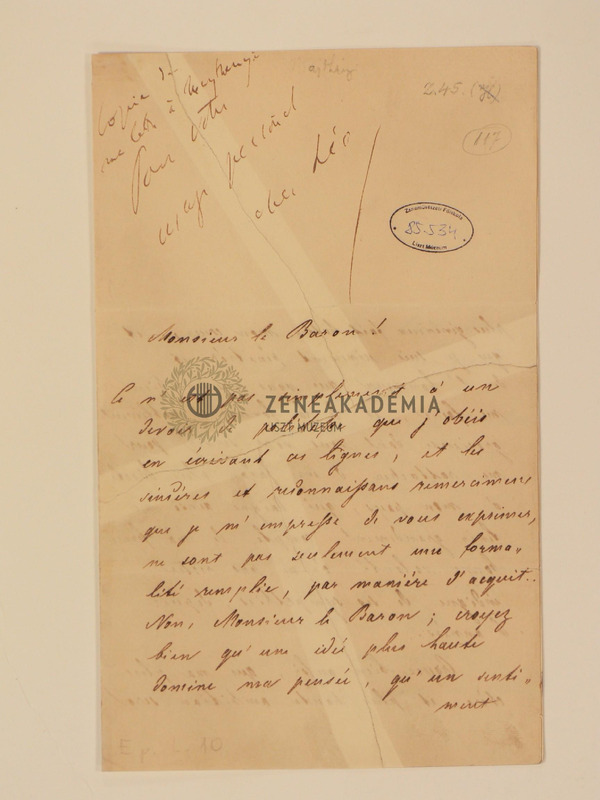 Copie de
ma lettre à
Pour votre
usage personnel
cher Léo
2.45.
117
Zeneművészeti Főiskola
85.534
Liszt Múzeum
Monsieur le Baron!
Ce n'est pas simplement à un
devoir de politesse que j'obéis
en écrivant ces lignes, et les
sincères et reconnaissans remercimens
que je m'empresse de vous exprimer,
ne sont pas seulement une forma-
lité remplie, par manière d'acquit..
Non, Monsieur le Baron; croyez
bien qu'une idée plus haute
domine ma pensée, qu'un senti-
ment
ZENEAKADÉMIA
LISZT MÚZEUM